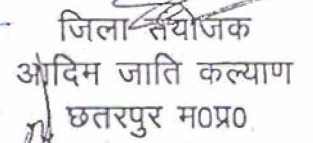 जिला संयोजक
आदिम जाति कल्याण
छतरपुर म0प्र0